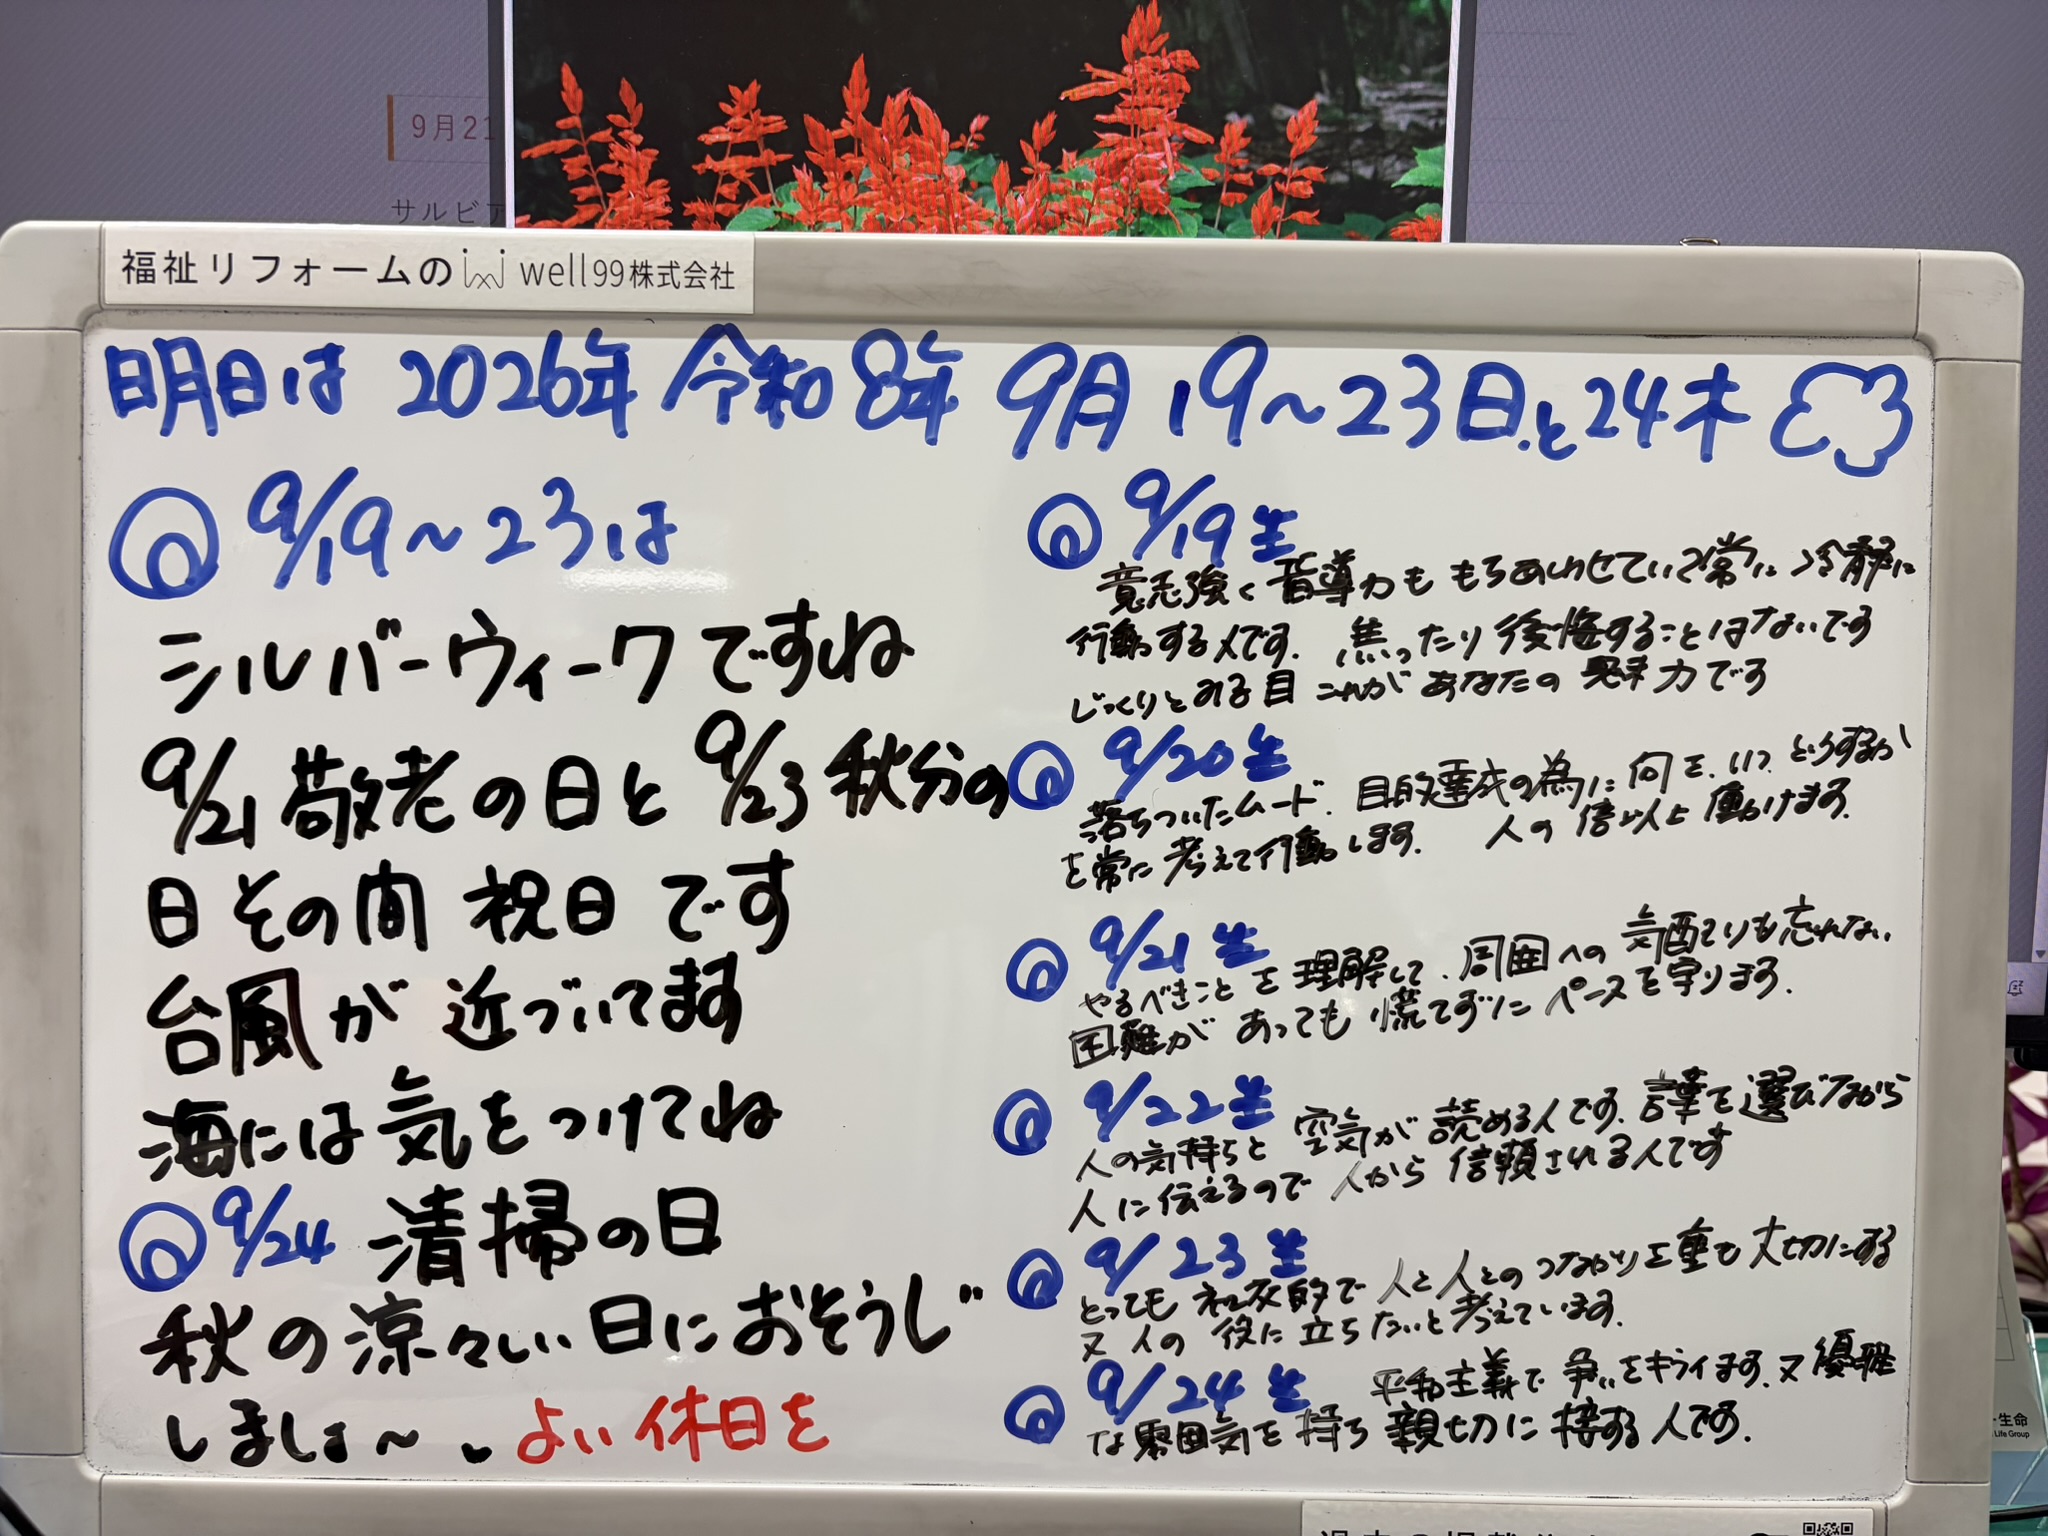 9月21
サルビア
福祉リフォームの well99株式会社
明日は 2026年 令和8年 9月19〜23日と24木
9/19〜23は
シルバーウィークですね
9/21 敬老の日と 9/23 秋分の
日 その間 祝日です
台風が 近づいてます
海には気をつけてね
9/24 清掃の日
秋の涼々しい日におそうじ
しましょ〜 よい休日を
9/19生
意志強く指導力も もちあわせていて常に冷静に
行動する人です. 焦ったり後悔することはないです
じっくりとみる目 これがあなたの魅力です
9/20生
落ちついたムード. 目的達成の為に何を. いつ どうするか
を常に考えて行動します. 人の倍以上働けます.
9/21生
やるべきことを理解して. 周囲への気配りも忘れない
困難が あっても慌てずに ペースを守ります.
9/22生
人の気持ちと 空気が 読める人です. 言葉を選びながら
人に伝えるので 人から 信頼される人です
9/23生
とっても 社交的で 人と人とのつながりを重も大切にする
又 人の 役に立ちたいと考えています.
9/24生 平和主義で 争いをキライます. 又 優雅
な雰囲気を持ち 親切に接する人です.
生命
Life Group